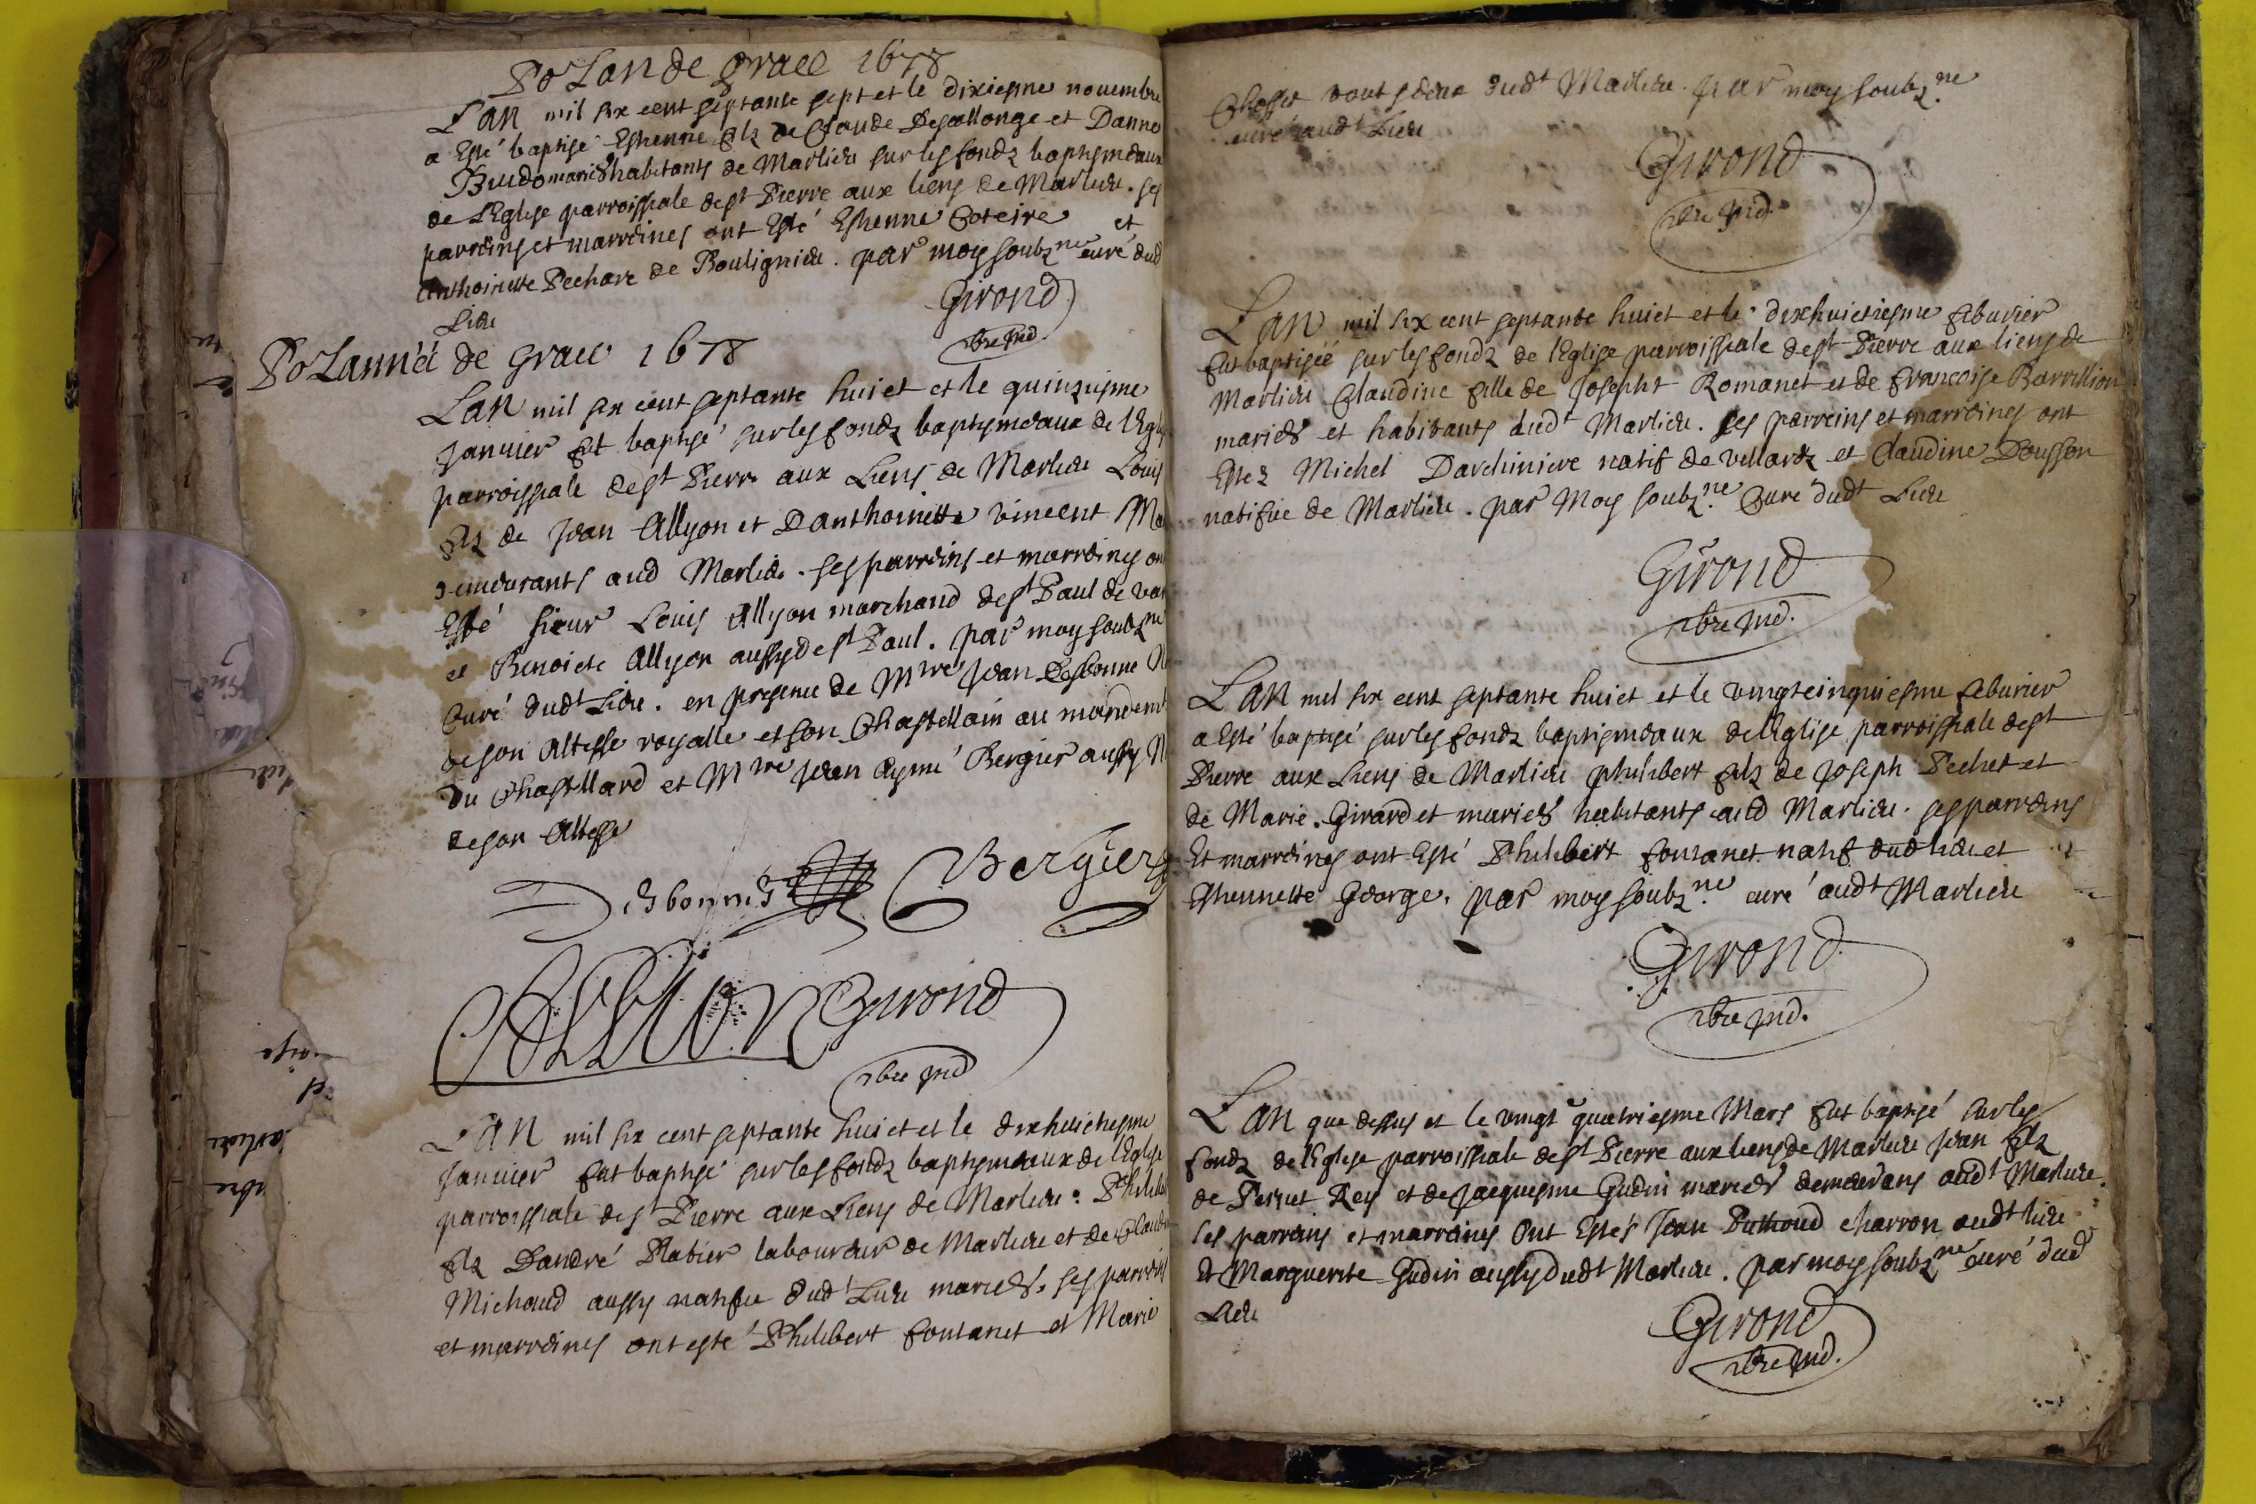 Po Lan de grace 1678
Lan mil six cent septante sept et le dixiesme nouembre
a Esté baptisé Estienne filz de Claude Descollonge et Danne
mariés habitants de Marlieu sur les fondz baptismeaux
de LEglise parroissiale de st Pierre aux liens de Marlieu. ses
parreins et marreines ont Esté Estienne Coteire et
Anthoinette Pechare de Boulignieu. par moy soubzne curé dud
Lieu
Girond
Po Lannéé de grace 1678
Lan mil six cent septante huict et le quinziesme
Januier fut baptisé sur les fondz baptismeaux de l'Eglise
parroissiale de st Pierre aux Liens de Marlieu Louis
filz de Jean Allyon et Danthoinette vincent
demeurants aud Marlieu. ses parreins et marreines ont
Esté sieur Louis Allyon marchand de st Paul de
et Benoiste Allyon aussy de st Paul. par moy soubzne
Curé dudt Lieu. en presence de Mtre Jean Desbonne
de son Altesse royalle et son Chastellain au mandemt
du Chastellard et Mtre Jean Aymé Bergier aussy
de son Altesse
Desbonnes Bergier
Allion Girond
Lan mil six cent septante huict et le dixhuictiesme
Januier fut baptisé sur les fondz baptismeaux de l'Eglise
parroissiale de st Pierre aux Liens de Marlieu:
filz Dandré Rabier laboureur de Marlieu et de
Michaud aussy natifue dudt Lieu mariés. ses parreins
et marreines ont esté Philibert fontanet et Marie
dudt Marlieu. par moy soubzne
curé audt Lieu
Girond
Lan mil six cent septante huict et le dixhuictiesme feburier
fut baptiséé sur les fondz de lEglise parroissiale de st Pierre aux liens de
Marlieu Claudine fille de Josepht Romanet et de francoise Barrillion
mariés et habitants dudt Marlieu. ses parreins et marreines ont
Estez Michel Darchiniere natif de villardz et Claudine Dousson
natifue de Marlieu. par Moy soubzne Curé dudt Lieu
Girond
Lan mil six cent septante huict et le vingtcinquiesme feburier
a Esté baptisé sur les fondz baptismeaux de lEglise parroissiale de st
Pierre aux Liens de Marlieu philibert filz de Joseph Pechet et
de Marie Girard et mariés habitants aud Marlieu. ses parreins
Et marreines ont Esté Philibert fontanet natif dud lieu et
Estiennette George. par moy soubzne curé audt Marlieu
Girond
Lan que dessus et le vingt quatriesme Mars fut baptisé sur les
fondz de lEglise parroissiale de st Pierre aux liens de Marlieu Jean filz
de Pernet Rey et de Jacquesme Gudin mariés demeurans audt Marlieu.
ses parreins et marreines Ont Estés Jean charron audt lieu
Et Marguerite Gudin aussy dudt Marlieu. par moy soubzne curé dud
Lieu
Girond